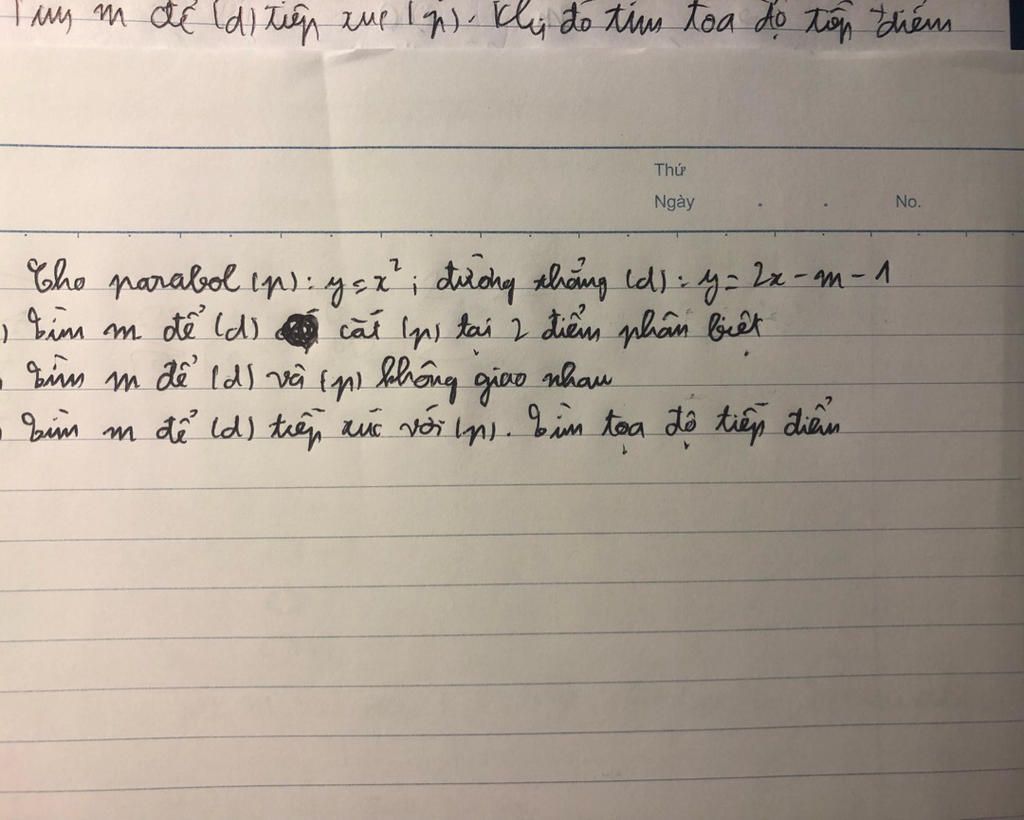 Tìm m để (d) tiếp xúc (p). Khi đó tìm toạ độ tiếp điểm
Thứ
Ngày . . No.
Cho parabol (p): y = x²; đường thẳng (d): y = 2x - m - 1
) Tìm m để (d) cắt (p) tại 2 điểm phân biệt
Tìm m để (d) và (p) không giao nhau
) Tìm m để (d) tiếp xúc với (p). Tìm tọa độ tiếp điểm